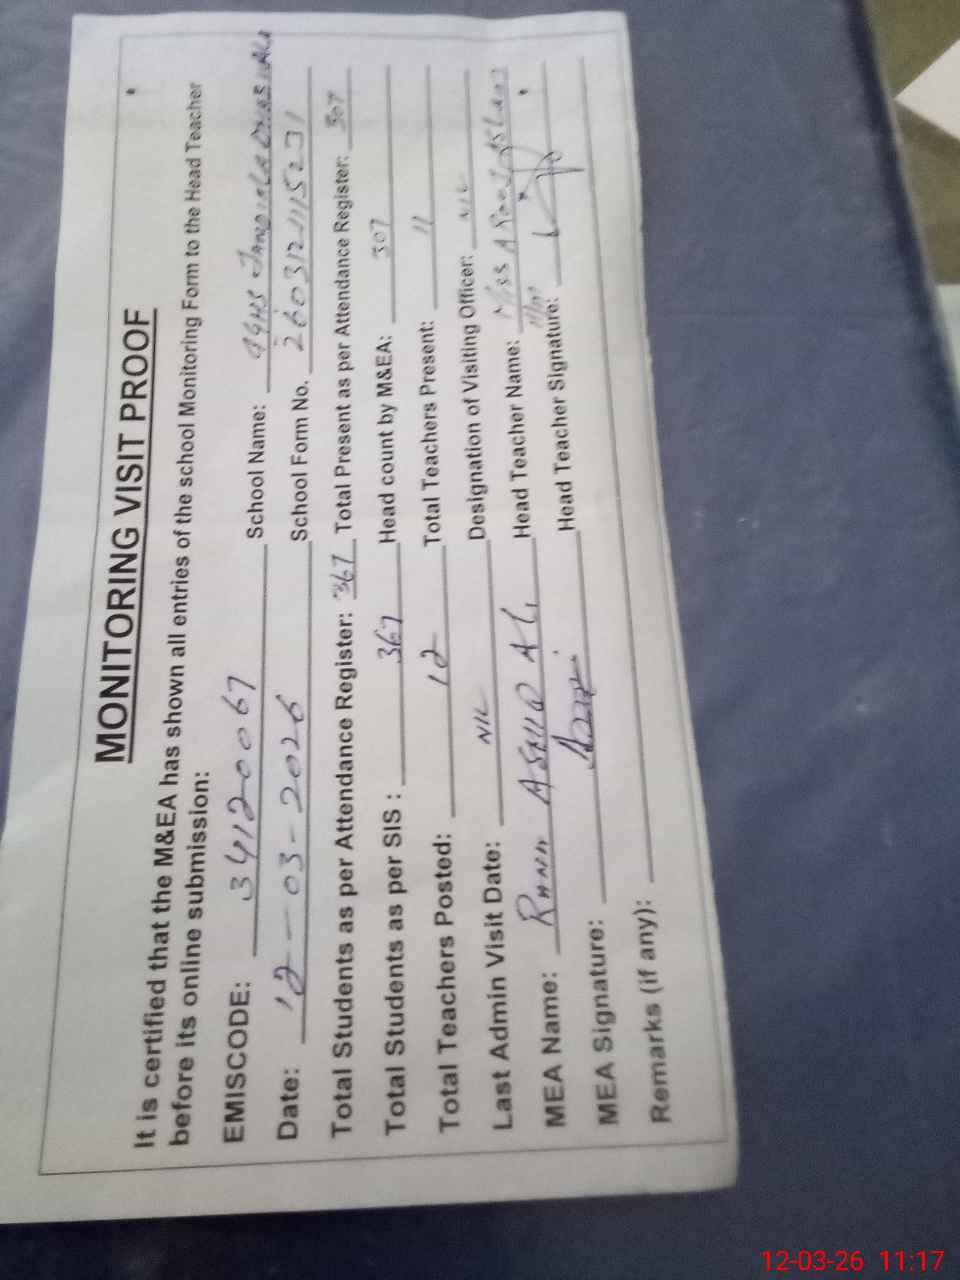 MONITORING VISIT PROOF
It is certified that the M&EA has shown all entries of the school Monitoring Form to the Head Teacher
before its online submission:
EMISCODE: 34120067 School Name: GGHS
Date: 12-03-2026 School Form No. 2603121115231
Total Students as per Attendance Register: 367 Total Present as per Attendance Register: 307
Total Students as per SIS : 367 Head count by M&EA: 307
Total Teachers Posted: 12 Total Teachers Present: 11
Last Admin Visit Date: NIL Designation of Visiting Officer: NIL
MEA Name: Rana Asad Ali Head Teacher Name: Miss
MEA Signature: Head Teacher Signature:
Remarks (if any):
12-03-26 11:17